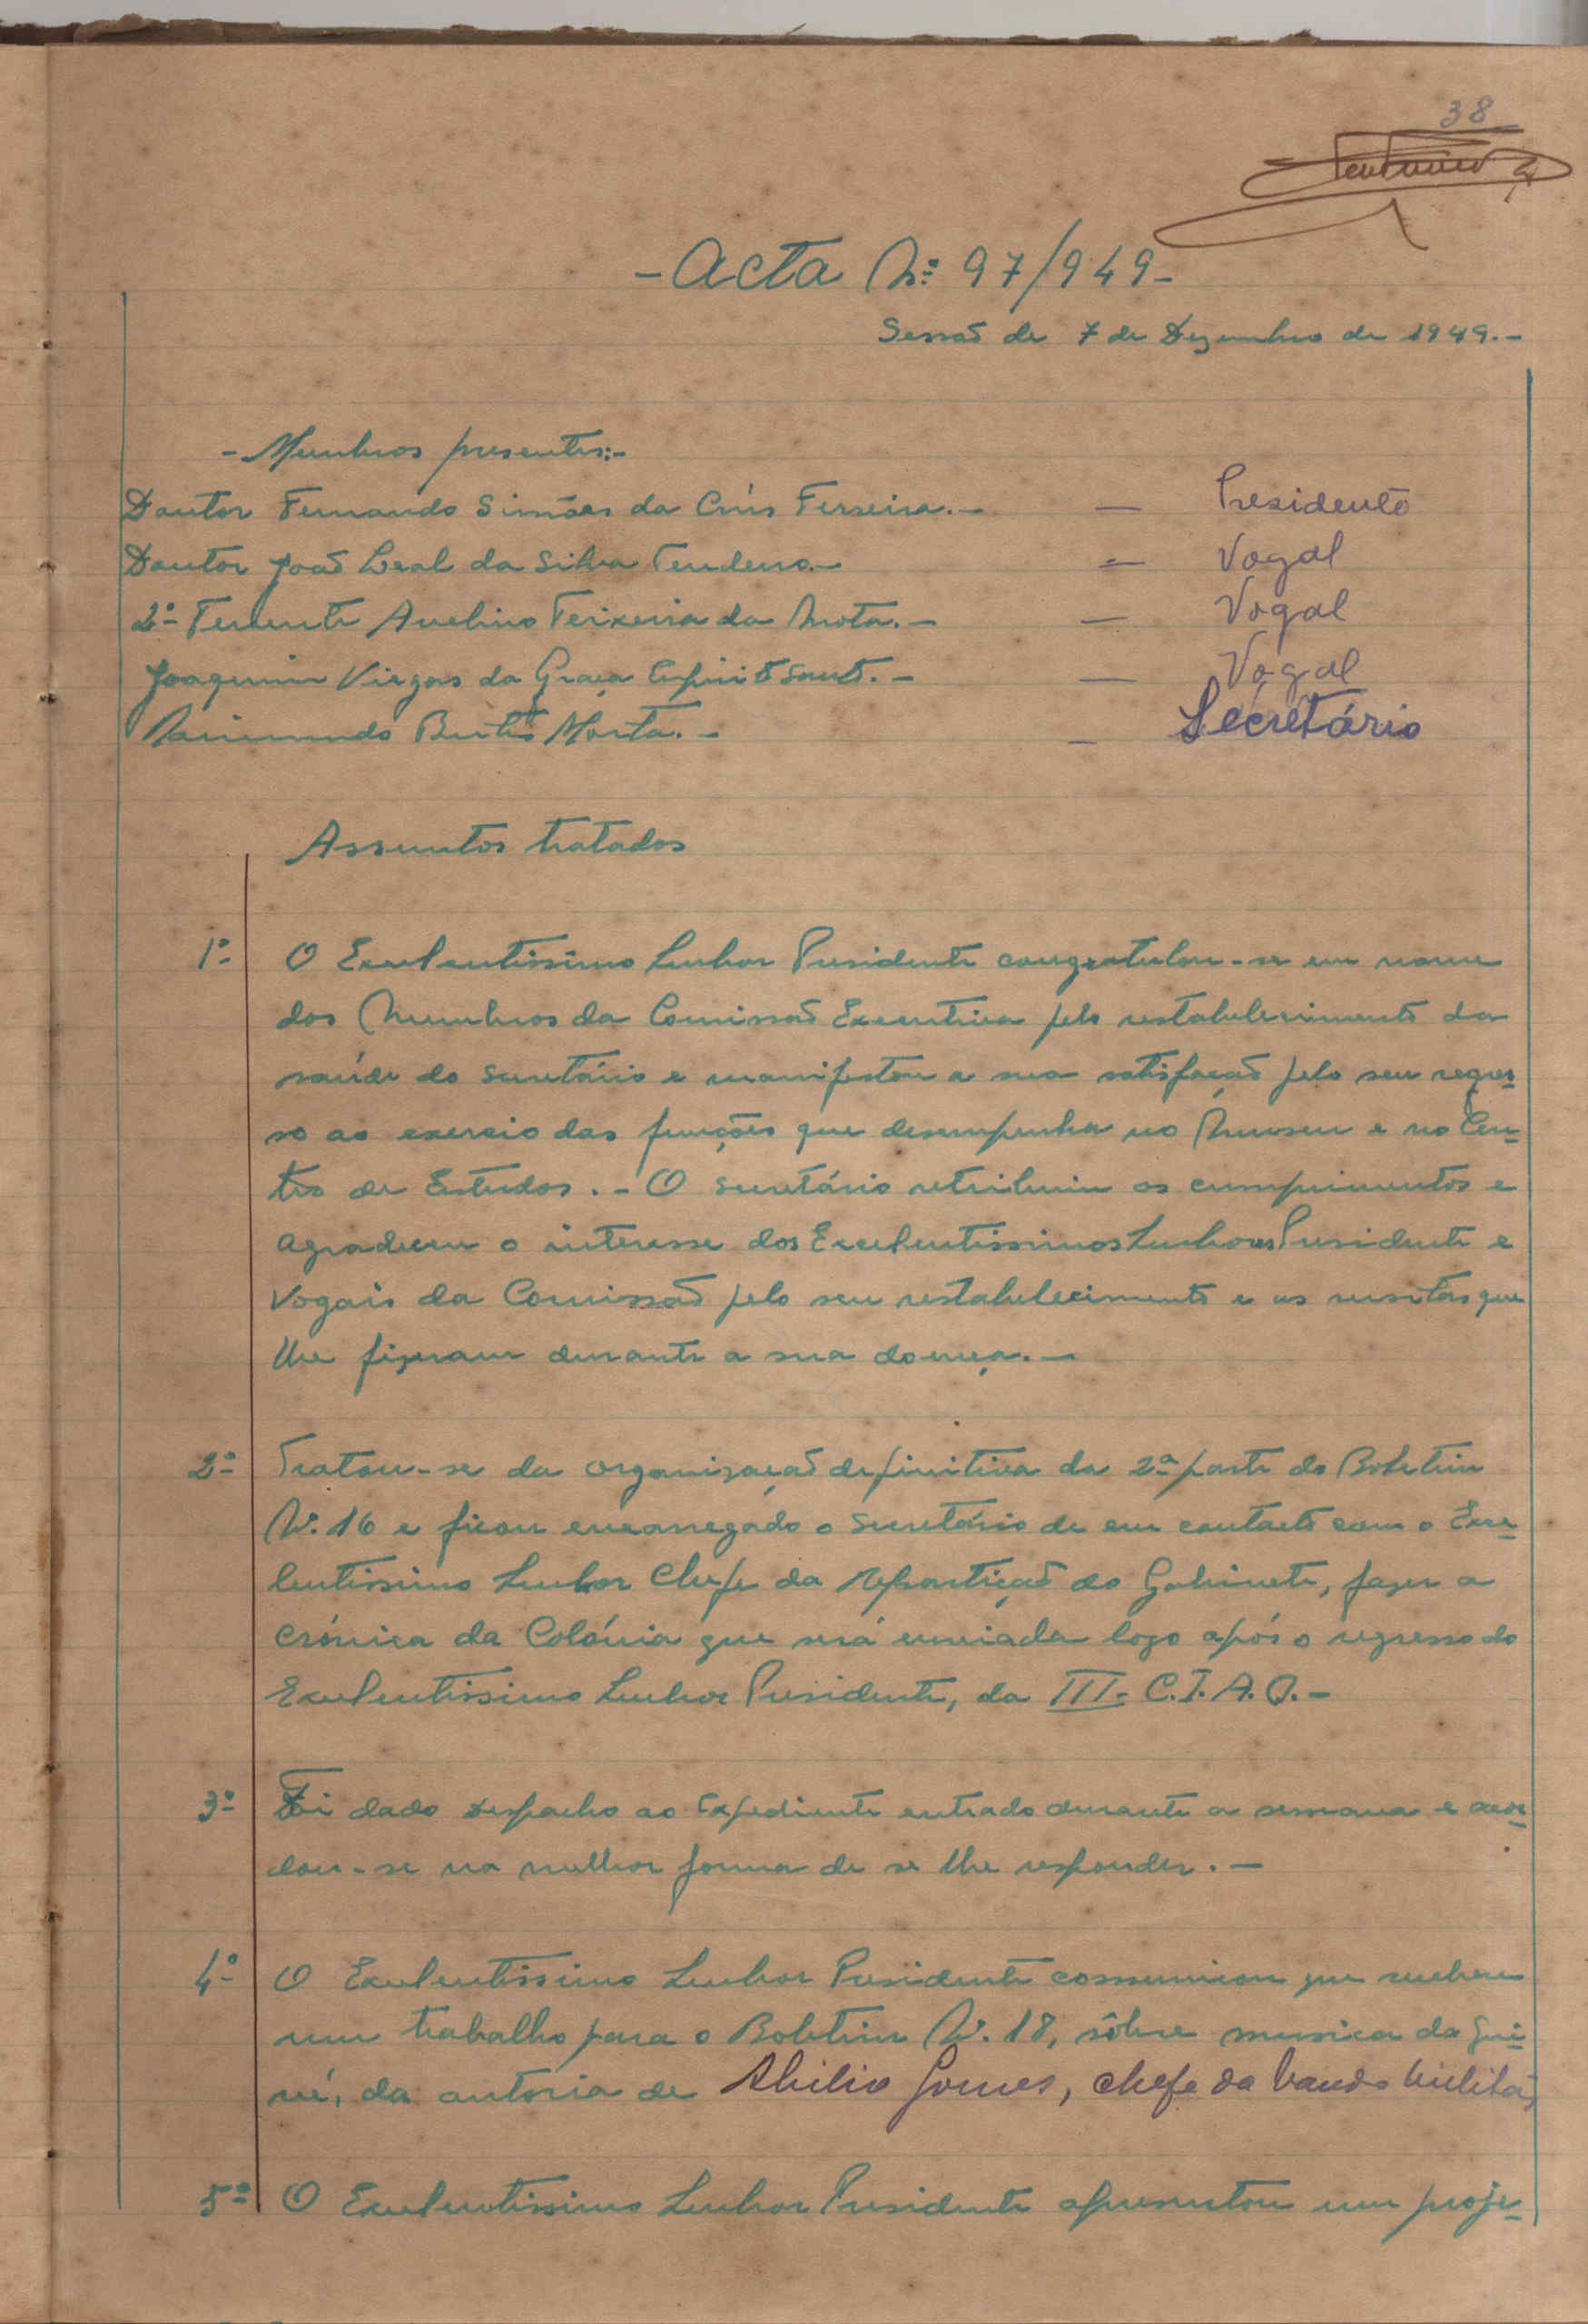 38
- Acta Nº 97/949 -
Sessão de 7 de Dezembro de 1949.-
- Membros presentes:-
Doutor Fernando Simões da Crús Ferreira.- — Presidente
Doutor João Leal da Silva Tendeiro.- — Vogal
2º Tenente Avelino Teixeira da Mota.- — Vogal
Joaquim Viegas da Graça Espirito Santo.- — Vogal
Raimundo Marta.- — Secretário
Assuntos tratados
1º O Excelentissimo Senhor Presidente congratulou-se em nome
dos Membros da Comissão Executiva pelo restabelecimento da
saúde do secretário e manifestou a sua satisfação pelo seu regres-
so ao exercio das funções que desempenha no Museu e no Cen-
tro de Estudos.- O secretário retribuiu os cumprimentos e
agradeceu o interesse dos Excelentissimos Senhores Presidente e
Vogais da Comissão pelo seu restabelecimento e as visitas que
lhe fizeram durante a sua doença.-
2º Tratou-se da organização definitiva da 2ª parte do Boletim
Nº. 16 e ficou encarregado o secretário de em contacto com o Exce-
lentissimo Senhor Chefe da Repartição do Gabinete, fazer a
crónica da Colónia que será enviada logo após o regresso do
Excelentissimo Senhor Presidente, da III- C.I.A.O.-
3º Foi dado despacho ao Expediente entrado durante a semana e acor-
dou-se na melhor forma de se lhe responder.-
4º O Excelentissimo Senhor Presidente comunicou que recebeu
um trabalho para o Boletim Nº. 18, sôbre musica da Gui-
né, da autoria de Abilio Gomes, chefe da banda militar
5º O Excelentissimo Senhor Presidente apresentou um proje-